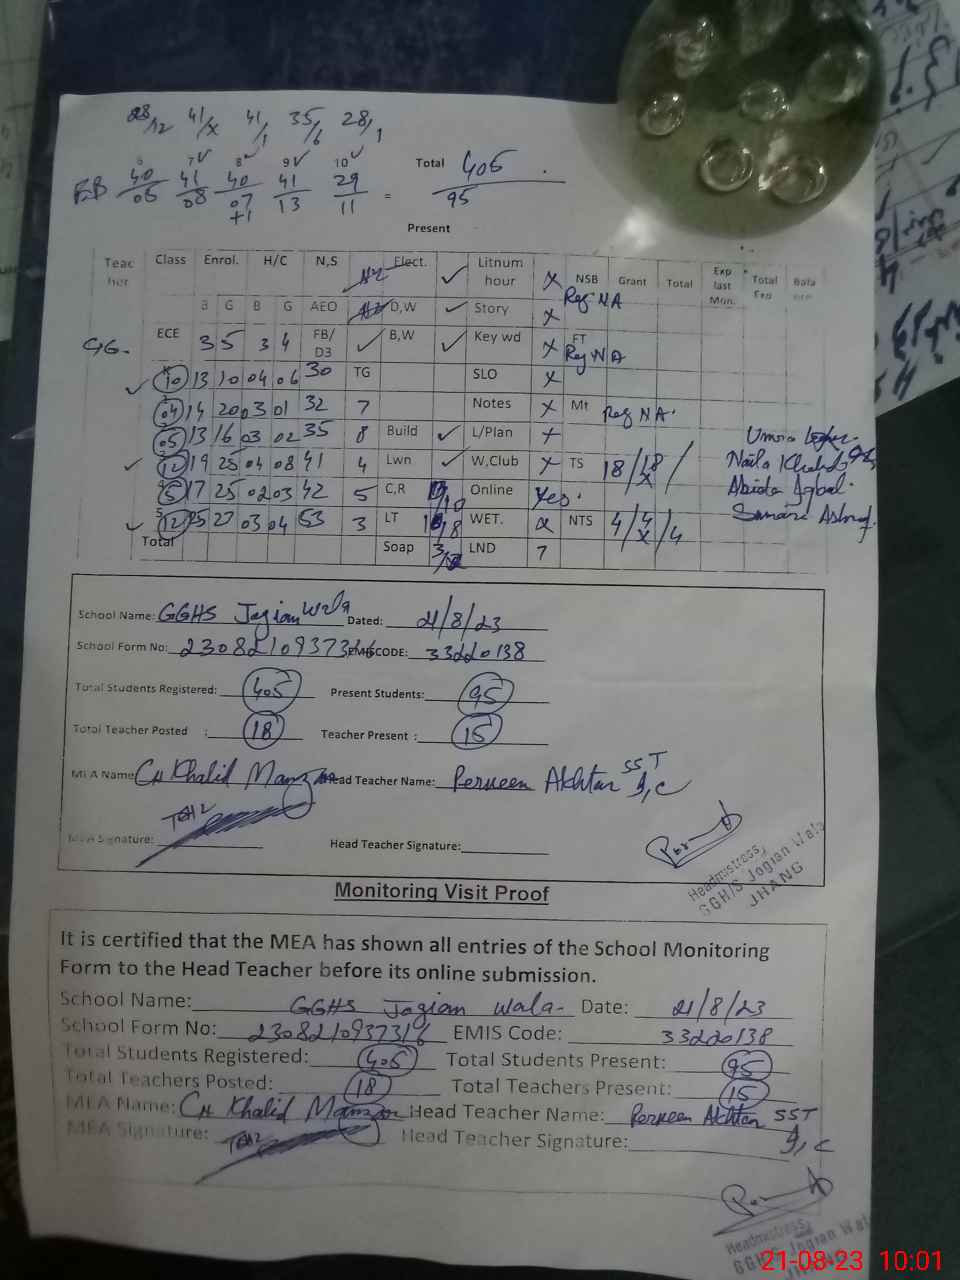 28/12 41/x 41/1 35/6 28/1
6 7✓ 8✓ 9✓ 10✓ Total 405
40/05 41/08 40/07 +1 41/13 29/11 = 95
Present
Teacher Class Enrol. H/C N,S Elect. ✓ Litnum hour x NSB Grant Total Exp last Mon. Total Exp Bala
B G B G AEO D,W ✓ Story x Reg NA
ECE 3 5 3 4 FB/D3 ✓ B,W ✓ Key wd x FT Reg NA
✓ 10 13 10 04 06 30 TG SLO x
04 14 20 03 01 32 7 Notes x Mt Reg NA.
05 13 16 03 02 35 8 Build ✓ L/Plan x
✓ 12 19 25 04 08 41 4 Lwn ✓ W,Club x TS 18/18/
5 17 25 02 03 42 5 C,R Online Yes.
✓ 12 25 27 03 04 53 3 LT WET. NTS 4/4/4
Total Soap LND 7
Naila Khalid
Abida Iqbal.
School Name: GGHS Jogian Wala Dated: 21/8/23
School Form No: EMISCODE: 33220138
Total Students Registered: 405 Present Students: 95
Total Teacher Posted : 18 Teacher Present : 15
MEA Name: Ch Khalid Head Teacher Name: Perveen Akhtar SST I,C
MEA Signature: Head Teacher Signature:
Headmistress,
GGH/S Jogian Wala
JHANG
Monitoring Visit Proof
It is certified that the MEA has shown all entries of the School Monitoring
Form to the Head Teacher before its online submission.
School Name: GGHS Jogian Wala. Date: 21/8/23
School Form No: 2308210937316 EMIS Code: 33220138
Total Students Registered: 405 Total Students Present: 95
Total Teachers Posted: 18 Total Teachers Present: 15
MEA Name: Ch Khalid Head Teacher Name: Perveen Akhtar SST
MEA Signature: Head Teacher Signature: I,C
Headmistress,
GGH/S Jogian Wal
JHANG
21-08-23 10:01